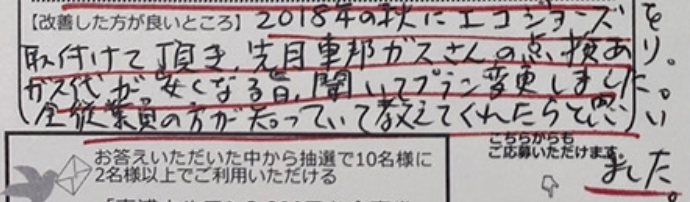 【改善した方が良いところ】2018年の秋にエコジョーズを
取付けて頂き、先月東邦ガスさんの点検あり。
ガス代が安くなる旨、聞いてプラン変更しました。
全従業員の方が知っていて教えてくれたらと思い
ました。
お答えいただいた中から抽選で10名様に
2名様以上でご利用いただける
こちらからも
ご応募いただけます